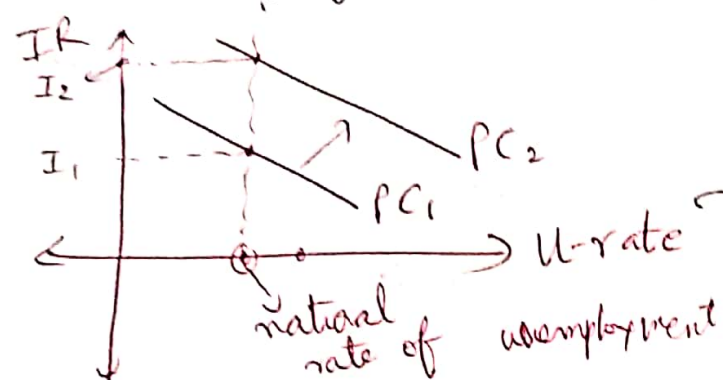 IR
I₂
PC₂
I₁
PC₁
U-rate
natural
rate of unemployment